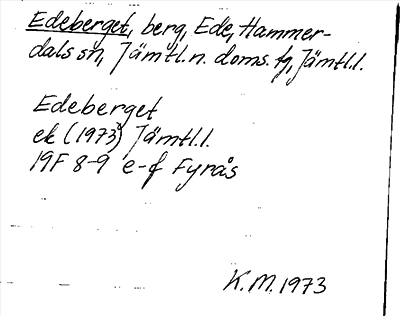 Edeberget, berg, Ede, Hammer-
dals sn, Jämtl.n. doms. tg, Jämtl.l.
Edeberget
ek (1973) Jämtl.l.
19F 8-9 e-f Fyrås
K.M. 1973